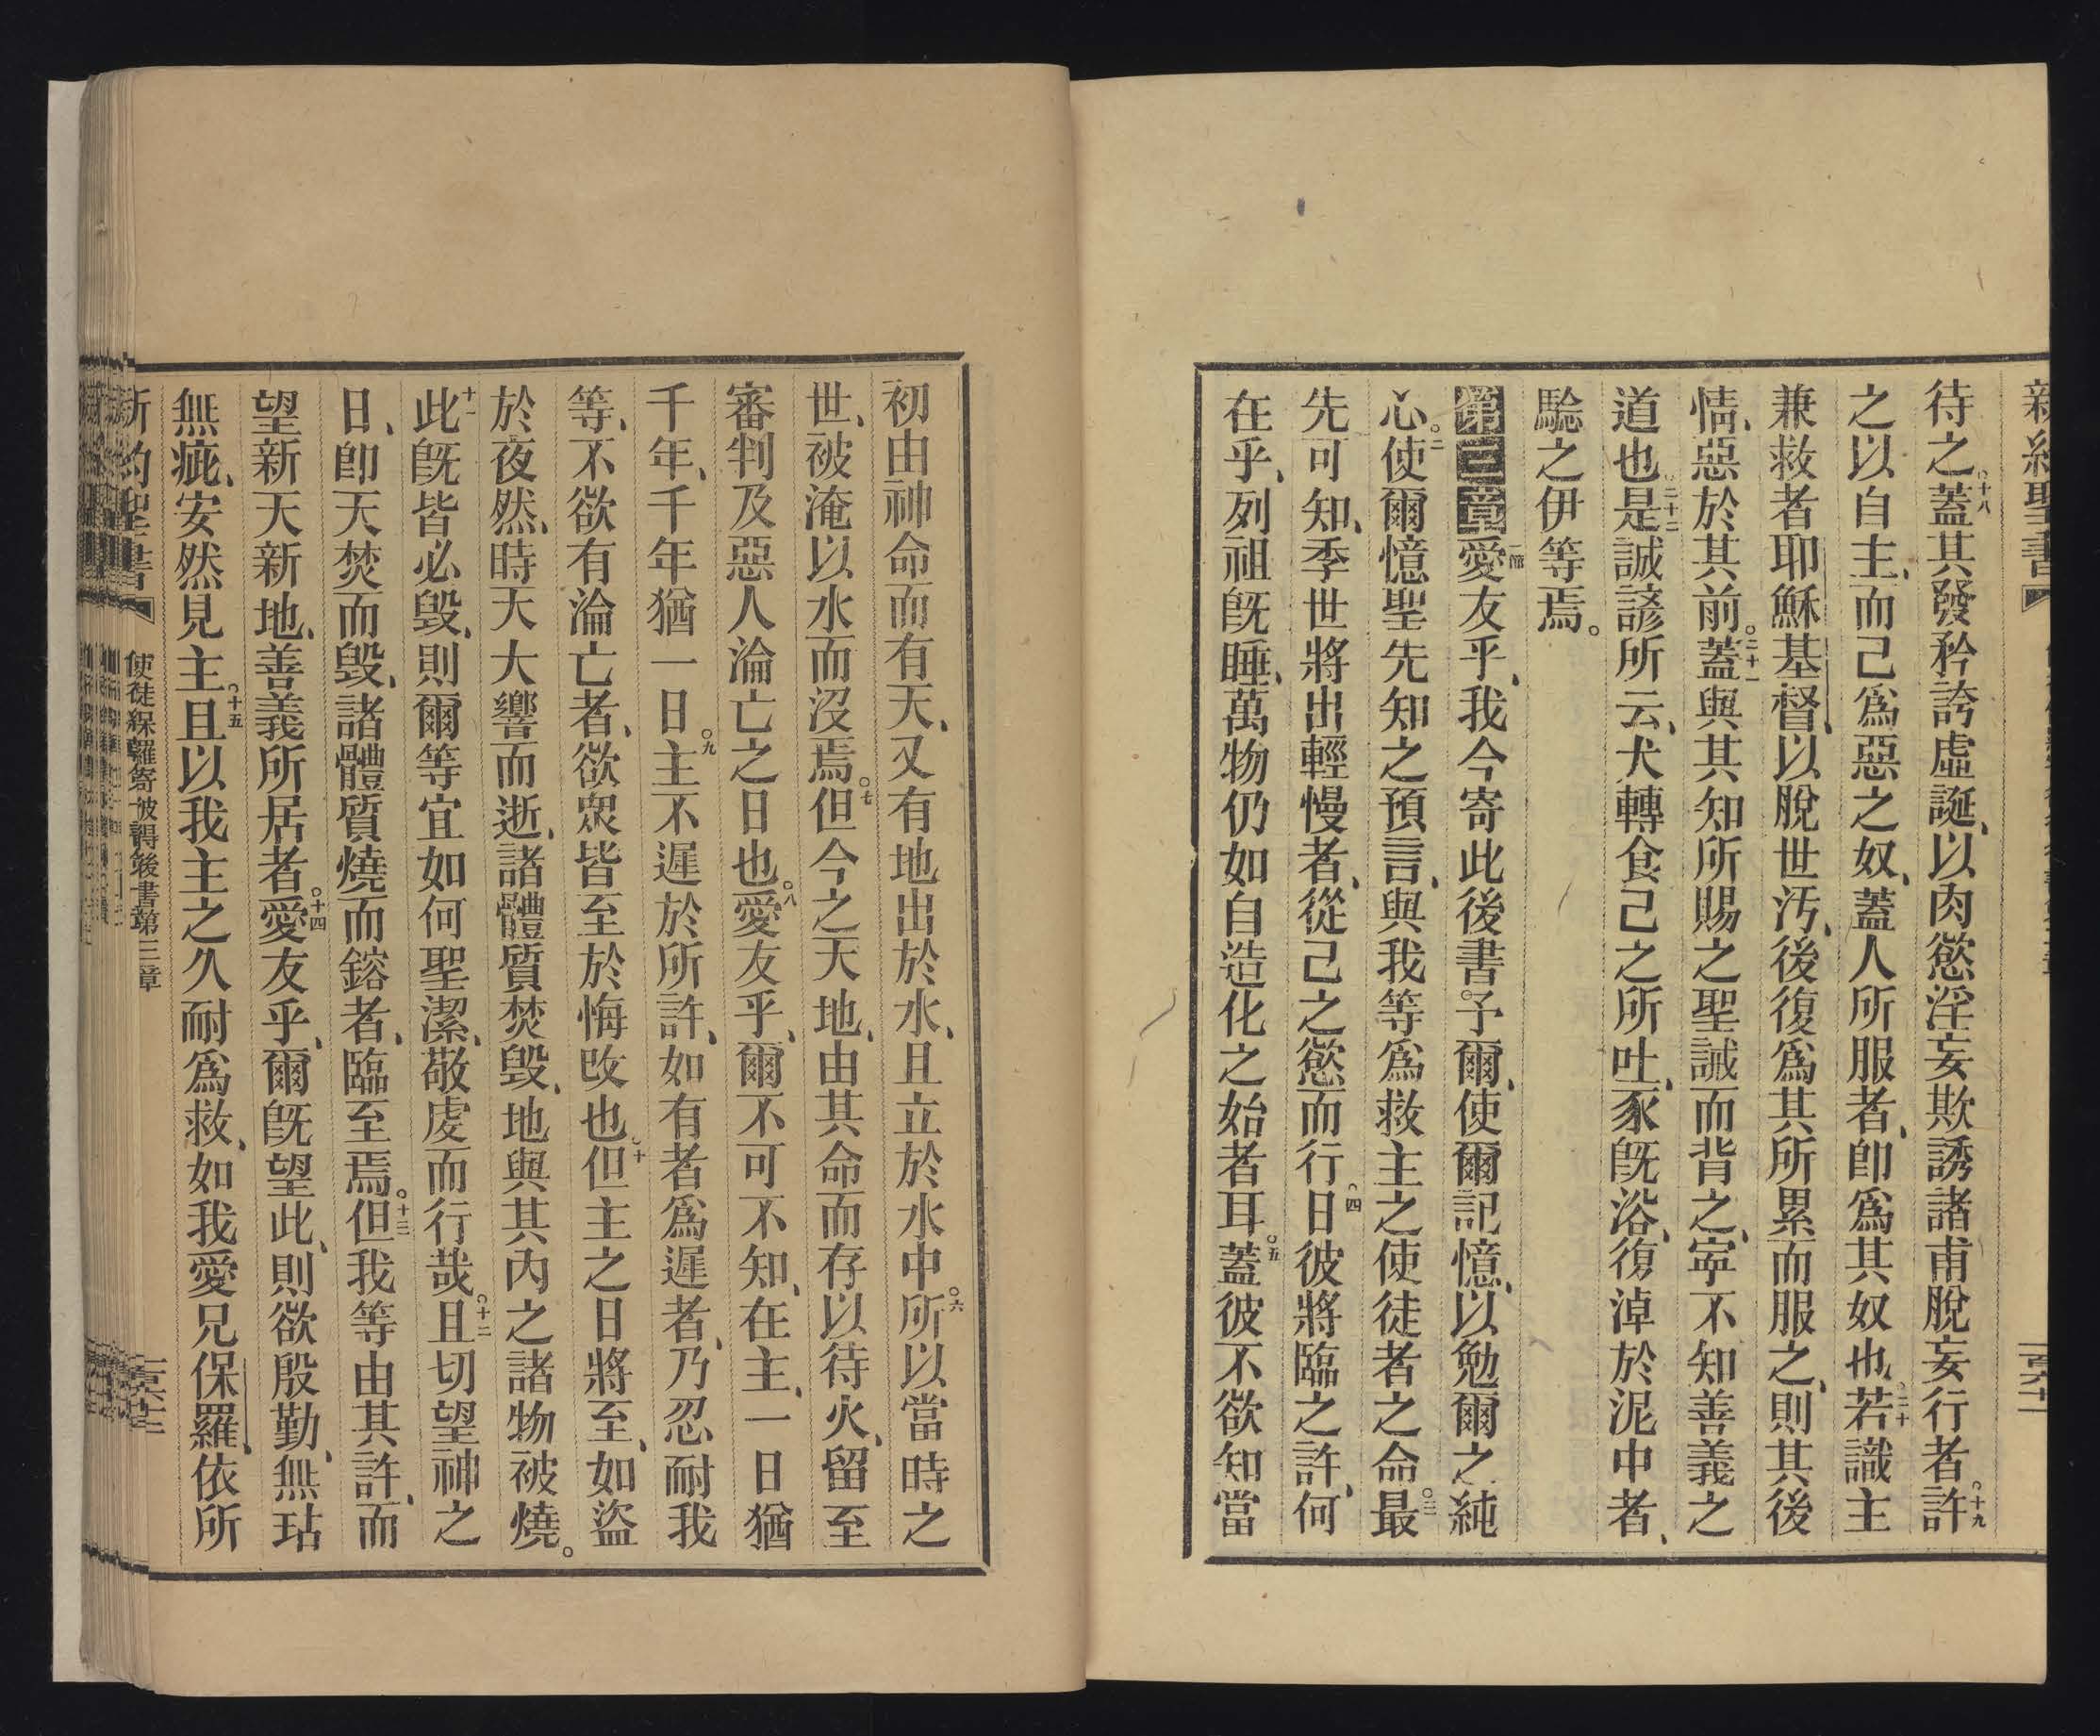 新約聖書
待之○十八蓋其發矜誇虛誕、以肉慾淫妄欺誘諸甫脫妄行者○十九許
之以自主、而己爲惡之奴、蓋人所服者、卽爲其奴也○二十若識主
兼救者耶穌基督、以脫世汚、後復爲其所累而服之、則其後
情、惡於其前。二十一蓋與其知所賜之聖誡而背之、寧不知善義之
道也○二十二是誠諺所云、犬轉食己之所吐、豕旣浴、復淖於泥中者、
驗之伊等焉。
第三章一節愛友乎、我今寄此後書○予爾、使爾記憶、以勉爾之純
心○二使爾憶聖先知之預言、與我等爲救主之使徒者之命○三最
先可知、季世將出輕慢者、從己之慾而行○四日彼將臨之許、何
在乎、列祖旣睡、萬物仍如自造化之始者耳○五蓋彼不欲知當
初由神命而有天、又有地出於水、且立於水中○六所以當時之
世、被淹以水而沒焉○七但今之天地、由其命而存以待火、留至
審判及惡人淪亡之日也○八愛友乎、爾不可不知、在主、一日猶
千年、千年猶一日○九主不遲於所許、如有者爲遲者、乃忍耐我
等、不欲有淪亡者、欲衆皆至於悔改也○十但主之日將至、如盜
於夜然、時天大響而逝、諸體質焚毀、地與其內之諸物被燒。
十一此旣皆必毀、則爾等宜如何聖潔、敬虔而行哉○十二且切望神之
日、卽天焚而毀、諸體質燒而鎔者、臨至焉○十三但我等由其許、而
望新天新地、善義所居者○十四愛友乎、爾旣望此、則欲殷勤、無玷
無疵、安然見主○十五且以我主之久耐爲救、如我愛兄保羅、依所
新約聖書　使徒保羅寄彼得後書第三章